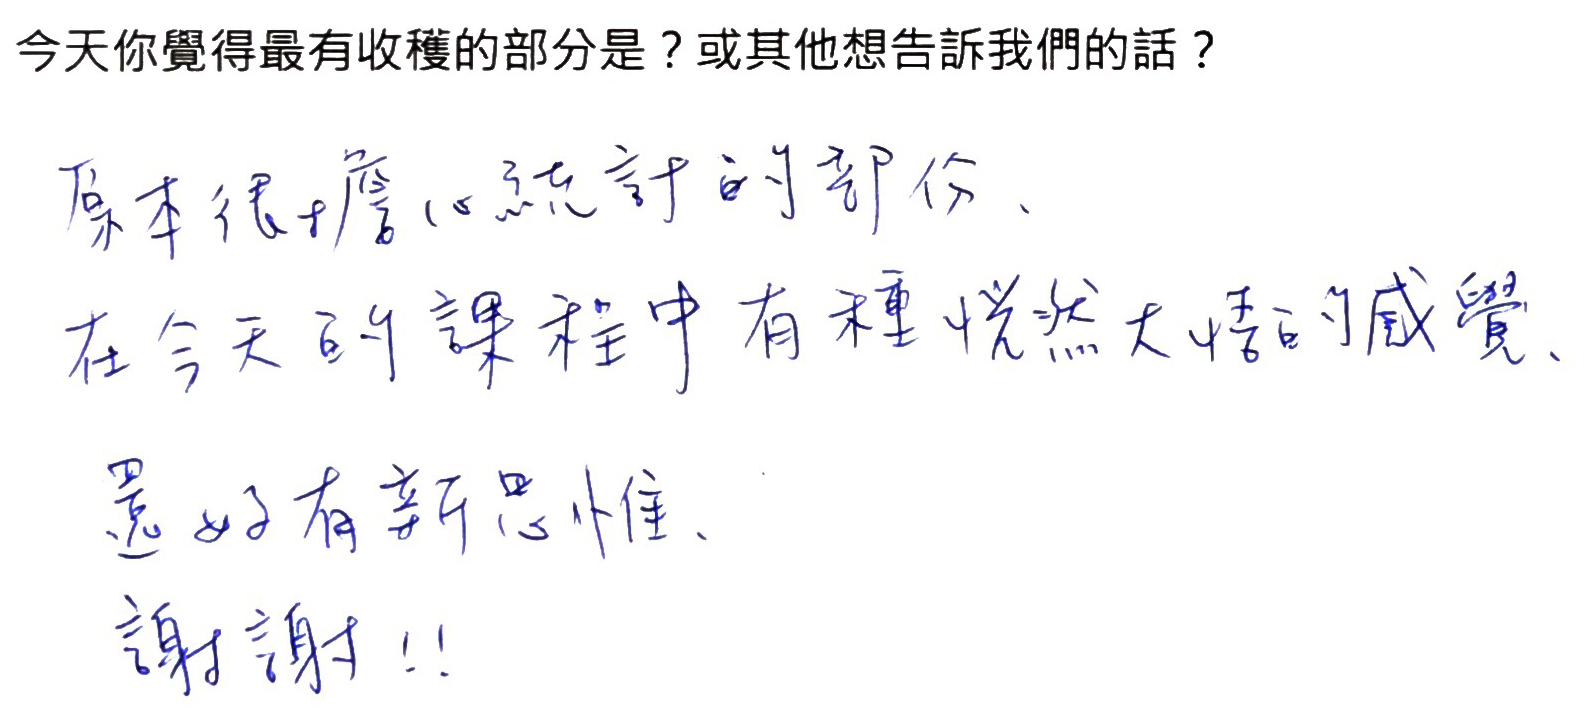 今天你覺得最有收穫的部分是？或其他想告訴我們的話？
原本很擔心統計的部份、
在今天的課程中有種恍然大悟的感覺、
還好有新思惟、
謝謝!!